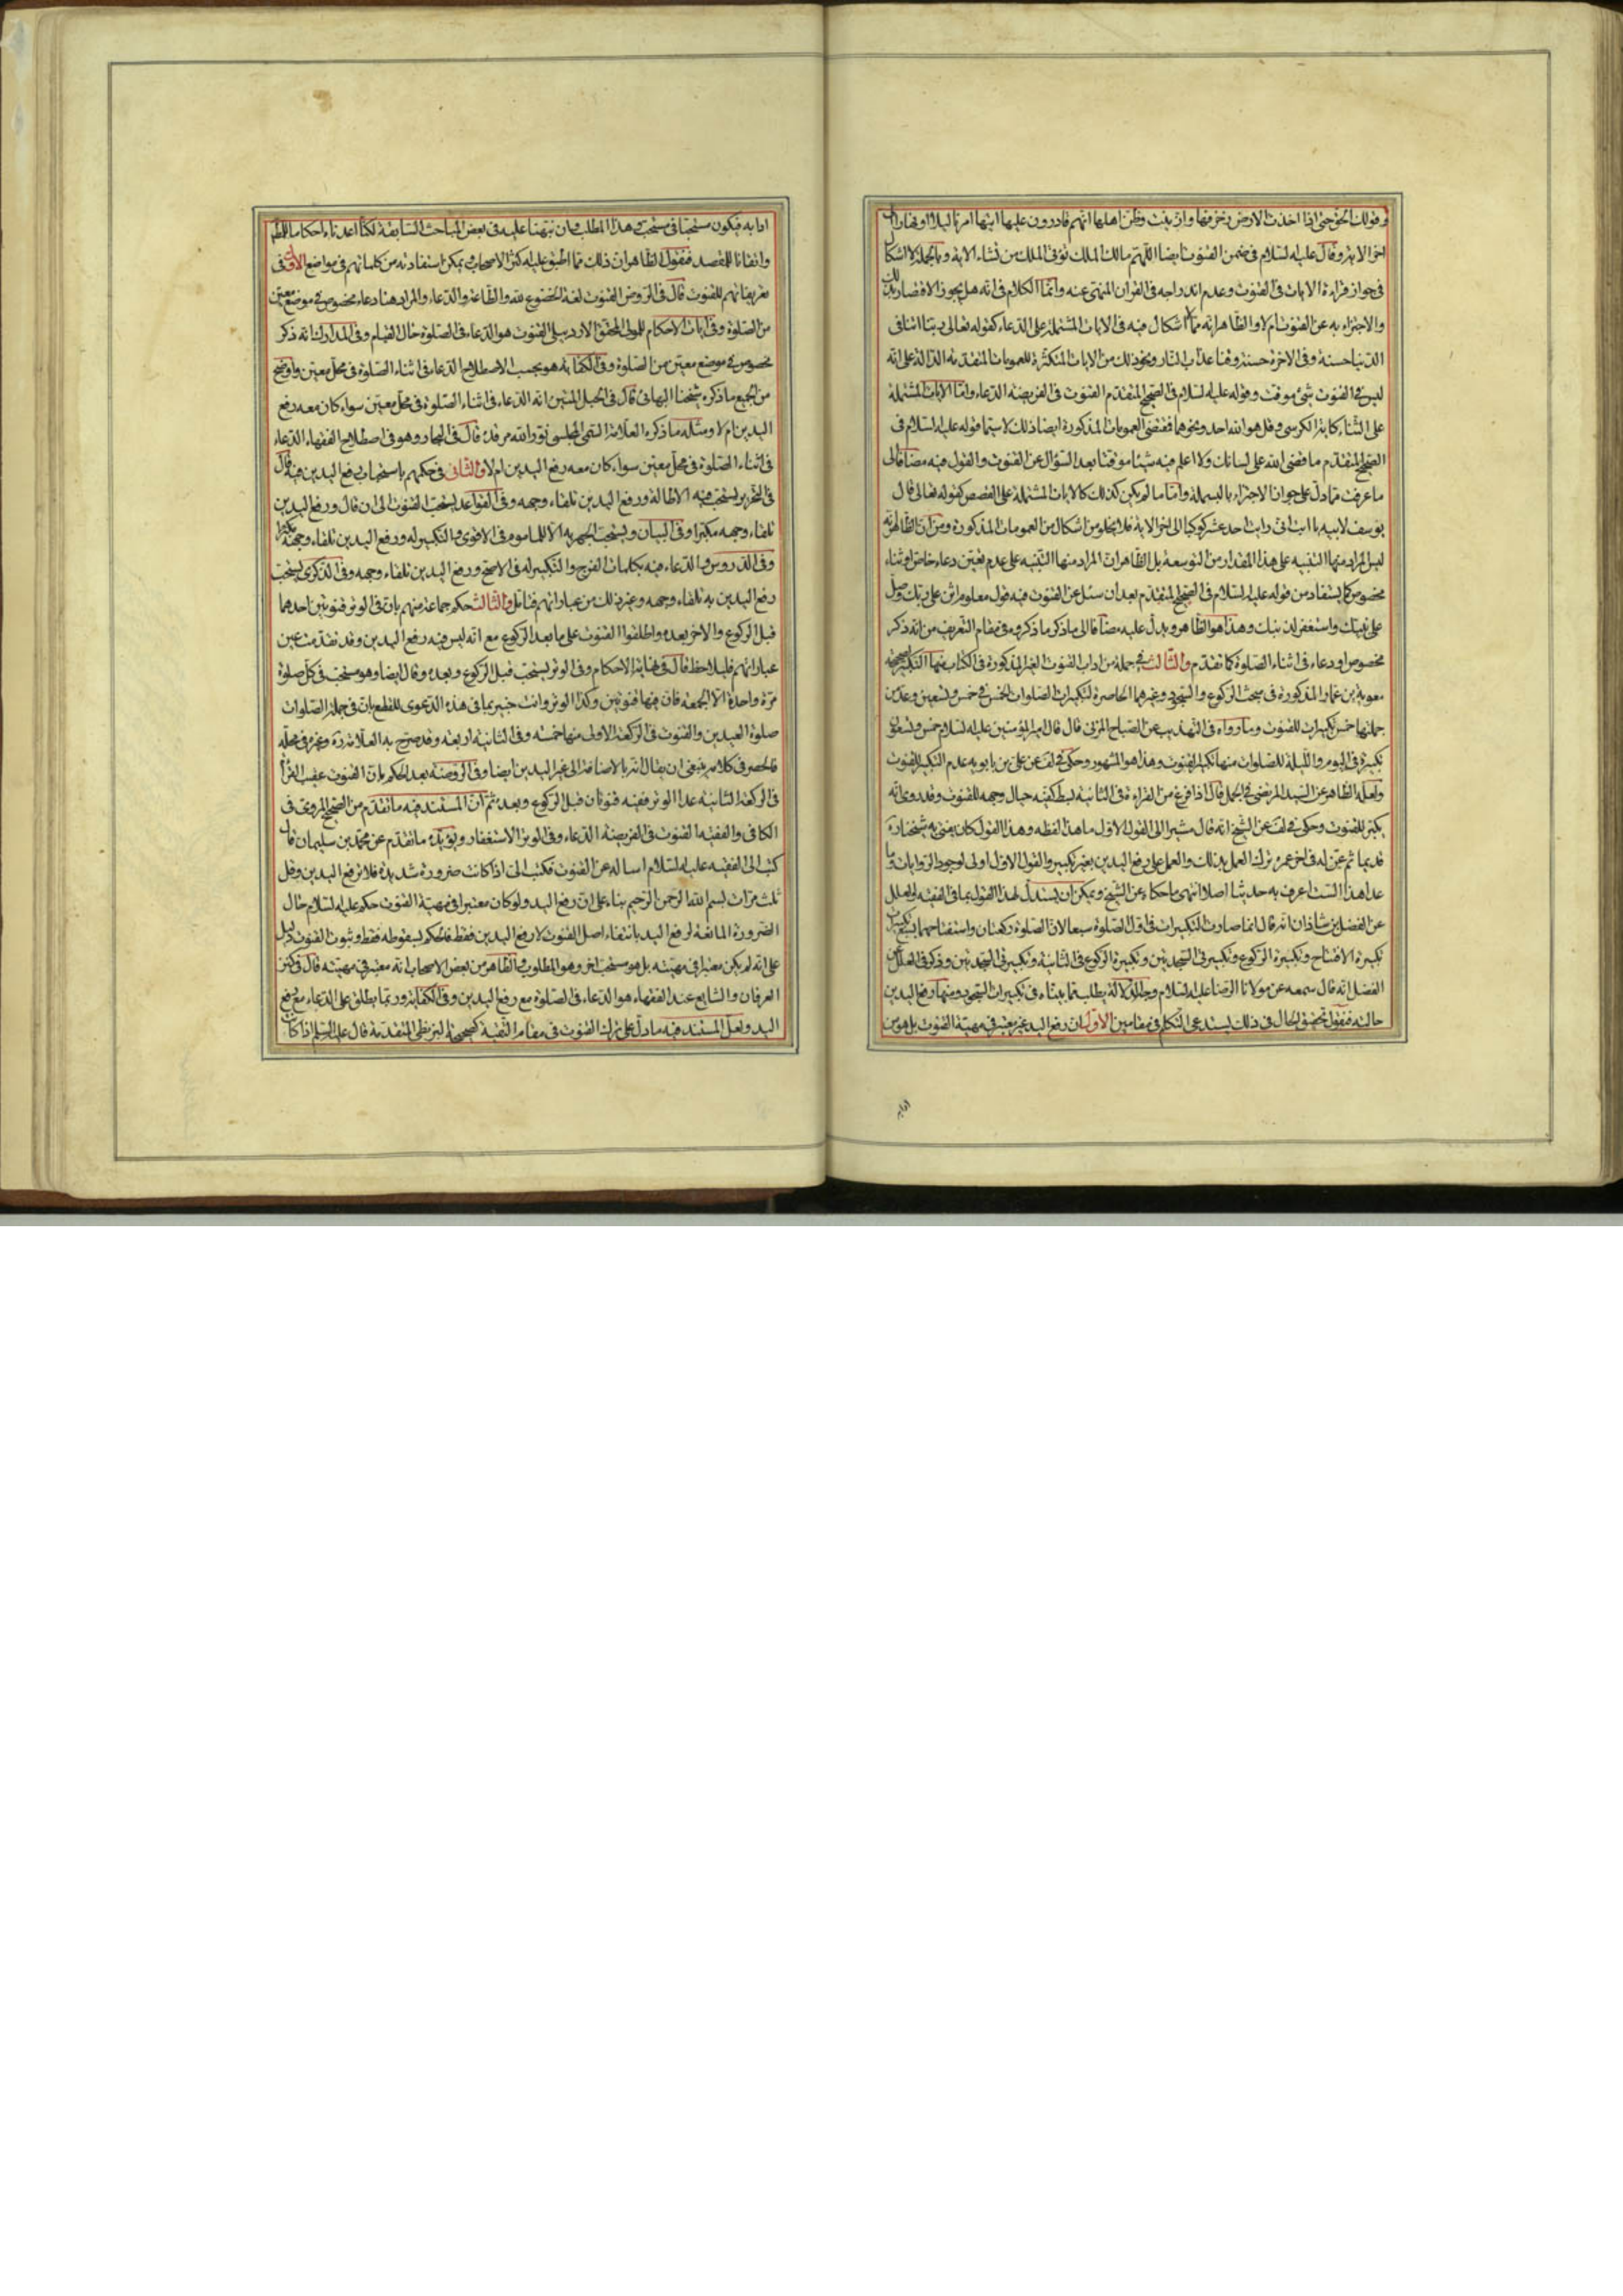 وقولك الحق حتى اذا اخذت الارض زخرفها وازينت وظن اهلها انهم قادرون عليها اتيها امرنا ليلا او نهارا الى
اخر الاية وقال عليه السلام فى ضمن القنوت ايضا اللهم مالك الملك تؤتى الملك من تشاء الاية وبالجملة لا اشكال
فى جواز قراءة الايات فى القنوت وعدم اندراجه فى القران المنهى عنه وانما الكلام فى انه هل يجوز الاقتصار بذلك
والاجتزاء به عن القنوت ام لا والظاهر انه مما لا اشكال فيه فى الايات المشتملة على الدعاء كقوله تعالى ربنا اتنا فى
الدنيا حسنة وفى الاخرة حسنة وقنا عذاب النار ونحو ذلك من الايات المتكثرة للعمومات المتقدمة الدالة على انه
ليس فى القنوت شئ موقت وقوله عليه السلام فى الصحيح المتقدم القنوت فى الفريضة الدعاء واما الايات المشتملة
على الثناء كاية الكرسى وقل هو الله احد ونحوهما فمقتضى العمومات المذكورة ايضا ذلك لا سيما قوله عليه السلام فى
الصحيح المتقدم ما قضى الله على لسانك ولا اعلم فيه شيئا موقتا بعد السؤال عن القنوت والقول فيه مضافا الى
ما عرفت مما دل على جواز الاجتزاء بالبسملة واما ما لم يكن كذلك كالايات المشتملة على القصص كقوله تعالى قال
يوسف لابيه يا ابت انى رايت احد عشر كوكبا الى اخر الاية فلا يخلو من اشكال من العمومات المذكورة ومن ان الظاهر انه
ليس المراد منها التنبيه على هذا المقدار من التوسعة بل الظاهر ان المراد منها التنبيه على عدم تعيين دعاء خاص او ثناء
مخصوص كما يستفاد من قوله عليه السلام فى الصحيح المتقدم بعد ان سئل عن القنوت فيه قول معلوم اثن على ربك وصل
على نبيك واستغفر لذنبك وهذا هو الظاهر ويدل عليه مضافا الى ما ذكر ما ذكروه فى مقام التعريف من انه ذكر
مخصوص او دعاء فى اثناء الصلوة كما تقدم والثالث فى جملة من اداب القنوت الغير المذكورة فى الكتاب فمنها التكبير لصحيحة
معوية بن عمار المذكورة فى مبحث الركوع والسجود وغيرهما الحاصرة لتكبيرات الصلوات الخمس فى خمس وتسعين وعد من
جملتها خمس تكبيرات للقنوت وما رواه فى التهذيب عن الصباح المزنى قال قال امير المؤمنين عليه السلام خمس وتسعون
تكبيرة فى اليوم والليلة للصلوات منها تكبير القنوت وهذا هو المشهور وحكى فى لف عن على بن بابويه عدم التكبير للقنوت
ولعله الظاهر عن السيد المرتضى فى الجمل قال اذا فرغ من القراءة فى الثانية بسط كفيه حيال وجهه للقنوت وقد روى انه
يكبر للقنوت وحكى فى لف عن الشيخ انه قال مشيرا الى القول الاول ما هذا لفظه وهذا القول كان يفتى به شيخنا ره
قديما ثم عن له فى اخر عمره ترك العمل بذلك والعمل على رفع اليدين بغير تكبير والقول الاول اولى لوجود الروايات وما
عدا هذا الست اعرف به حديثا اصلا انتهى ما حكاه عن الشيخ ويمكن ان يستدل لهذا القول بما فى الفقيه والعلل
عن الفضل بن شاذان انه قال انما صارت التكبيرات فى اول الصلوة سبعا لان الصلوة ركعتان واستفتاحهما بسبع تكبيرات
تكبيرة الافتتاح وتكبيرة الركوع وتكبير فى السجدتين وتكبيرة الركوع فى الثانية وتكبير فى السجدتين وذكر فى العلل عن
الفضل انه قال سمعه عن مولانا الرضا عليه السلام وجه الدلالة يطلب مما بيناه فى تكبيرات السجود ومنها رفع اليدين
حالته فنقول تحقيق الحال فى ذلك يستدعى التكلم فى مقامين الاول ان رفع اليد غير معتبر فى مهية القنوت بل هو من
ادابه
ادابه فيكون مستحبا فى مستحب وهذا المطلب وان نبهنا عليه فى بعض المباحث السابقة لكنا اعدناه احكاما للمطلب
واتقانا للمقصد فنقول الظاهر ان ذلك مما اطبق عليه اكثر الاصحاب ويمكن استفادته من كلماتهم فى مواضع الاول فى
تعريفاتهم للقنوت قال فى الروض القنوت لغة الخضوع لله والطاعة والدعاء والمراد هنا دعاء مخصوص فى موضع معين
من الصلوة وفى ايات الاحكام للمولى المحقق الاردبيلى القنوت هو الدعاء فى الصلوة حال القيام وفى المدارك انه ذكر
مخصوص فى موضع معين من الصلوة وفى الكفاية هو بحسب الاصطلاح الدعاء فى اثناء الصلوة فى محل معين واوضح
من الجميع ما ذكره شيخنا البهائى قال فى الحبل المتين انه الدعاء فى اثناء الصلوة فى محل معين سواء كان معه رفع
اليدين ام لا ومثله ما ذكره العلامة السمى المجلسى نور الله مرقده قال فى البحار وهو فى اصطلاح الفقهاء الدعاء
فى اثناء الصلوة فى محل معين سواء كان معه رفع اليدين ام لا والثانى فى حكمهم باستحباب رفع اليدين فيه قال
فى التحرير يستحب فيه الاطالة ورفع اليدين تلقاء وجهه وفى القواعد يستحب القنوت الى ان قال ورفع اليدين
تلقاء وجهه مكبرا وفى البيان ويستحب الجهر به الا للماموم فى الاقوى والتكبير له ورفع اليدين تلقاء وجهه مكبرا
وفى الدروس والدعاء فيه بكلمات الفرج والتكبير له فى الاصح ورفع اليدين تلقاء وجهه وفى الذكرى يستحب
رفع اليدين به تلقاء وجهه وغير ذلك من عباراتهم فتامل والثالث حكم جماعة منهم بان فى الوتر قنوتين احدهما
قبل الركوع والاخر بعده واطلقوا القنوت على ما بعد الركوع مع انه ليس فيه رفع اليدين وقد تقدمت عين
عباراتهم فليلاحظ قال فى نهاية الاحكام وفى الوتر يستحب قبل الركوع وبعده وقال ايضا وهو مستحب فى كل صلوة
مرة واحدة الا الجمعة فان فيها قنوتين وكذا الوتر وانت خبير بما فى هذه الدعوى للقطع بان فى جملة الصلوات
صلوة العيدين والقنوت فى الركعة الاولى منها خمسة وفى الثانية اربعة وقد صرح به العلامة ره وغيره فى محله
فالحصر فى كلامه ينبغى ان يقال انه بالاضافة الى غير العيدين ايضا وفى الروضة بعد الحكم بان القنوت عقيب القراءة
فى الركعة الثانية عدا الوتر ففيه قنوتان قبل الركوع وبعده ثم ان المستند فيه ما تقدم من الصحيح المروى فى
الكافى والفقيه القنوت فى الفريضة الدعاء وفى الوتر الاستغفار ويؤيده ما تقدم عن محمد بن سليمان قال
كتبت الى الفقيه عليه السلام اساله عن القنوت فكتب الى اذا كانت ضرورة شديدة فلا ترفع اليدين وقل
ثلث مرات بسم الله الرحمن الرحيم بناء على ان رفع اليد ولو كان معتبرا فى مهية القنوت حكم عليه السلام حال
الضرورة المانعة لرفع اليد بانتفاء اصل القنوت لا رفع اليدين فقط فالحكم بسقوطه فقط وثبوت القنوت دليل
على انه لم يكن معتبرا فى مهيته بل هو مستحب اخر وهو المطلوب والظاهر من بعض الاصحاب انه معتبر فى مهيته قال فى كنز
العرفان والشايع عند الفقهاء هو الدعاء فى الصلوة مع رفع اليدين وفى الكفاية وربما يطلق على الدعاء مع رفع
اليد ولعل المستند فيه ما دل على ترك القنوت فى مقام التقية كصحيحة البزنطى المتقدمة قال عليه السلام اذا كان